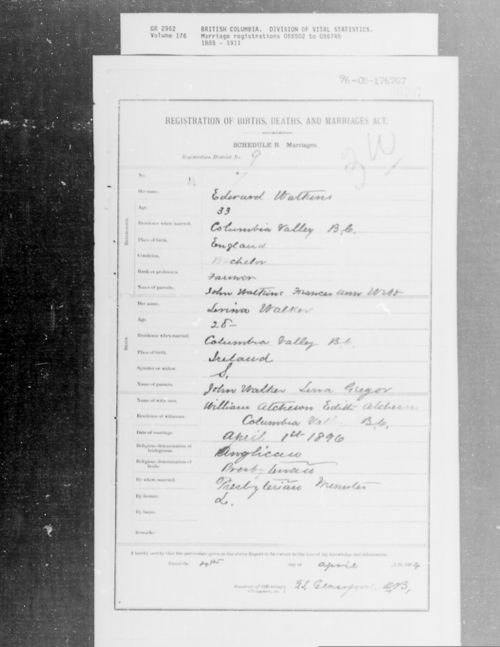 GR 2962 BRITISH COLUMBIA. DIVISION OF VITAL STATISTICS.
Volume 176 Marriage registrations 055502 to 056745
1885 - 1911
REGISTRATION OF BIRTHS, DEATHS, AND MARRIAGES ACT.
SCHEDULE B. Marriages
Registration District No. 9
No.
His name, Edward Watkins
Age, 33
Residence when married, Columbia Valley B.C.
Place of birth, England
Condition, Bachelor
Rank or profession, Farmer
Names of parents, John Watkins Frances Ann Webb
Her name, Walker
Age,
Residence when married, Columbia Valley B.C.
Place of birth, Ireland
Spinster or widow, S.
Names of parents, John Walker Lena Gregor
Names of witnesses, William Atcheson Edith
Residence of witnesses, Columbia B.C.
Date of marriage, April 1st 1896
Religious denomination of bridegroom, Anglican
Religious denomination of bride, Presbyterian
By whom married, Presbyterian Minister
By license, L.
By banns,
Remarks:
I hereby certify that the particulars given in the above Report to be correct to the best of my knowledge and information.
day of April